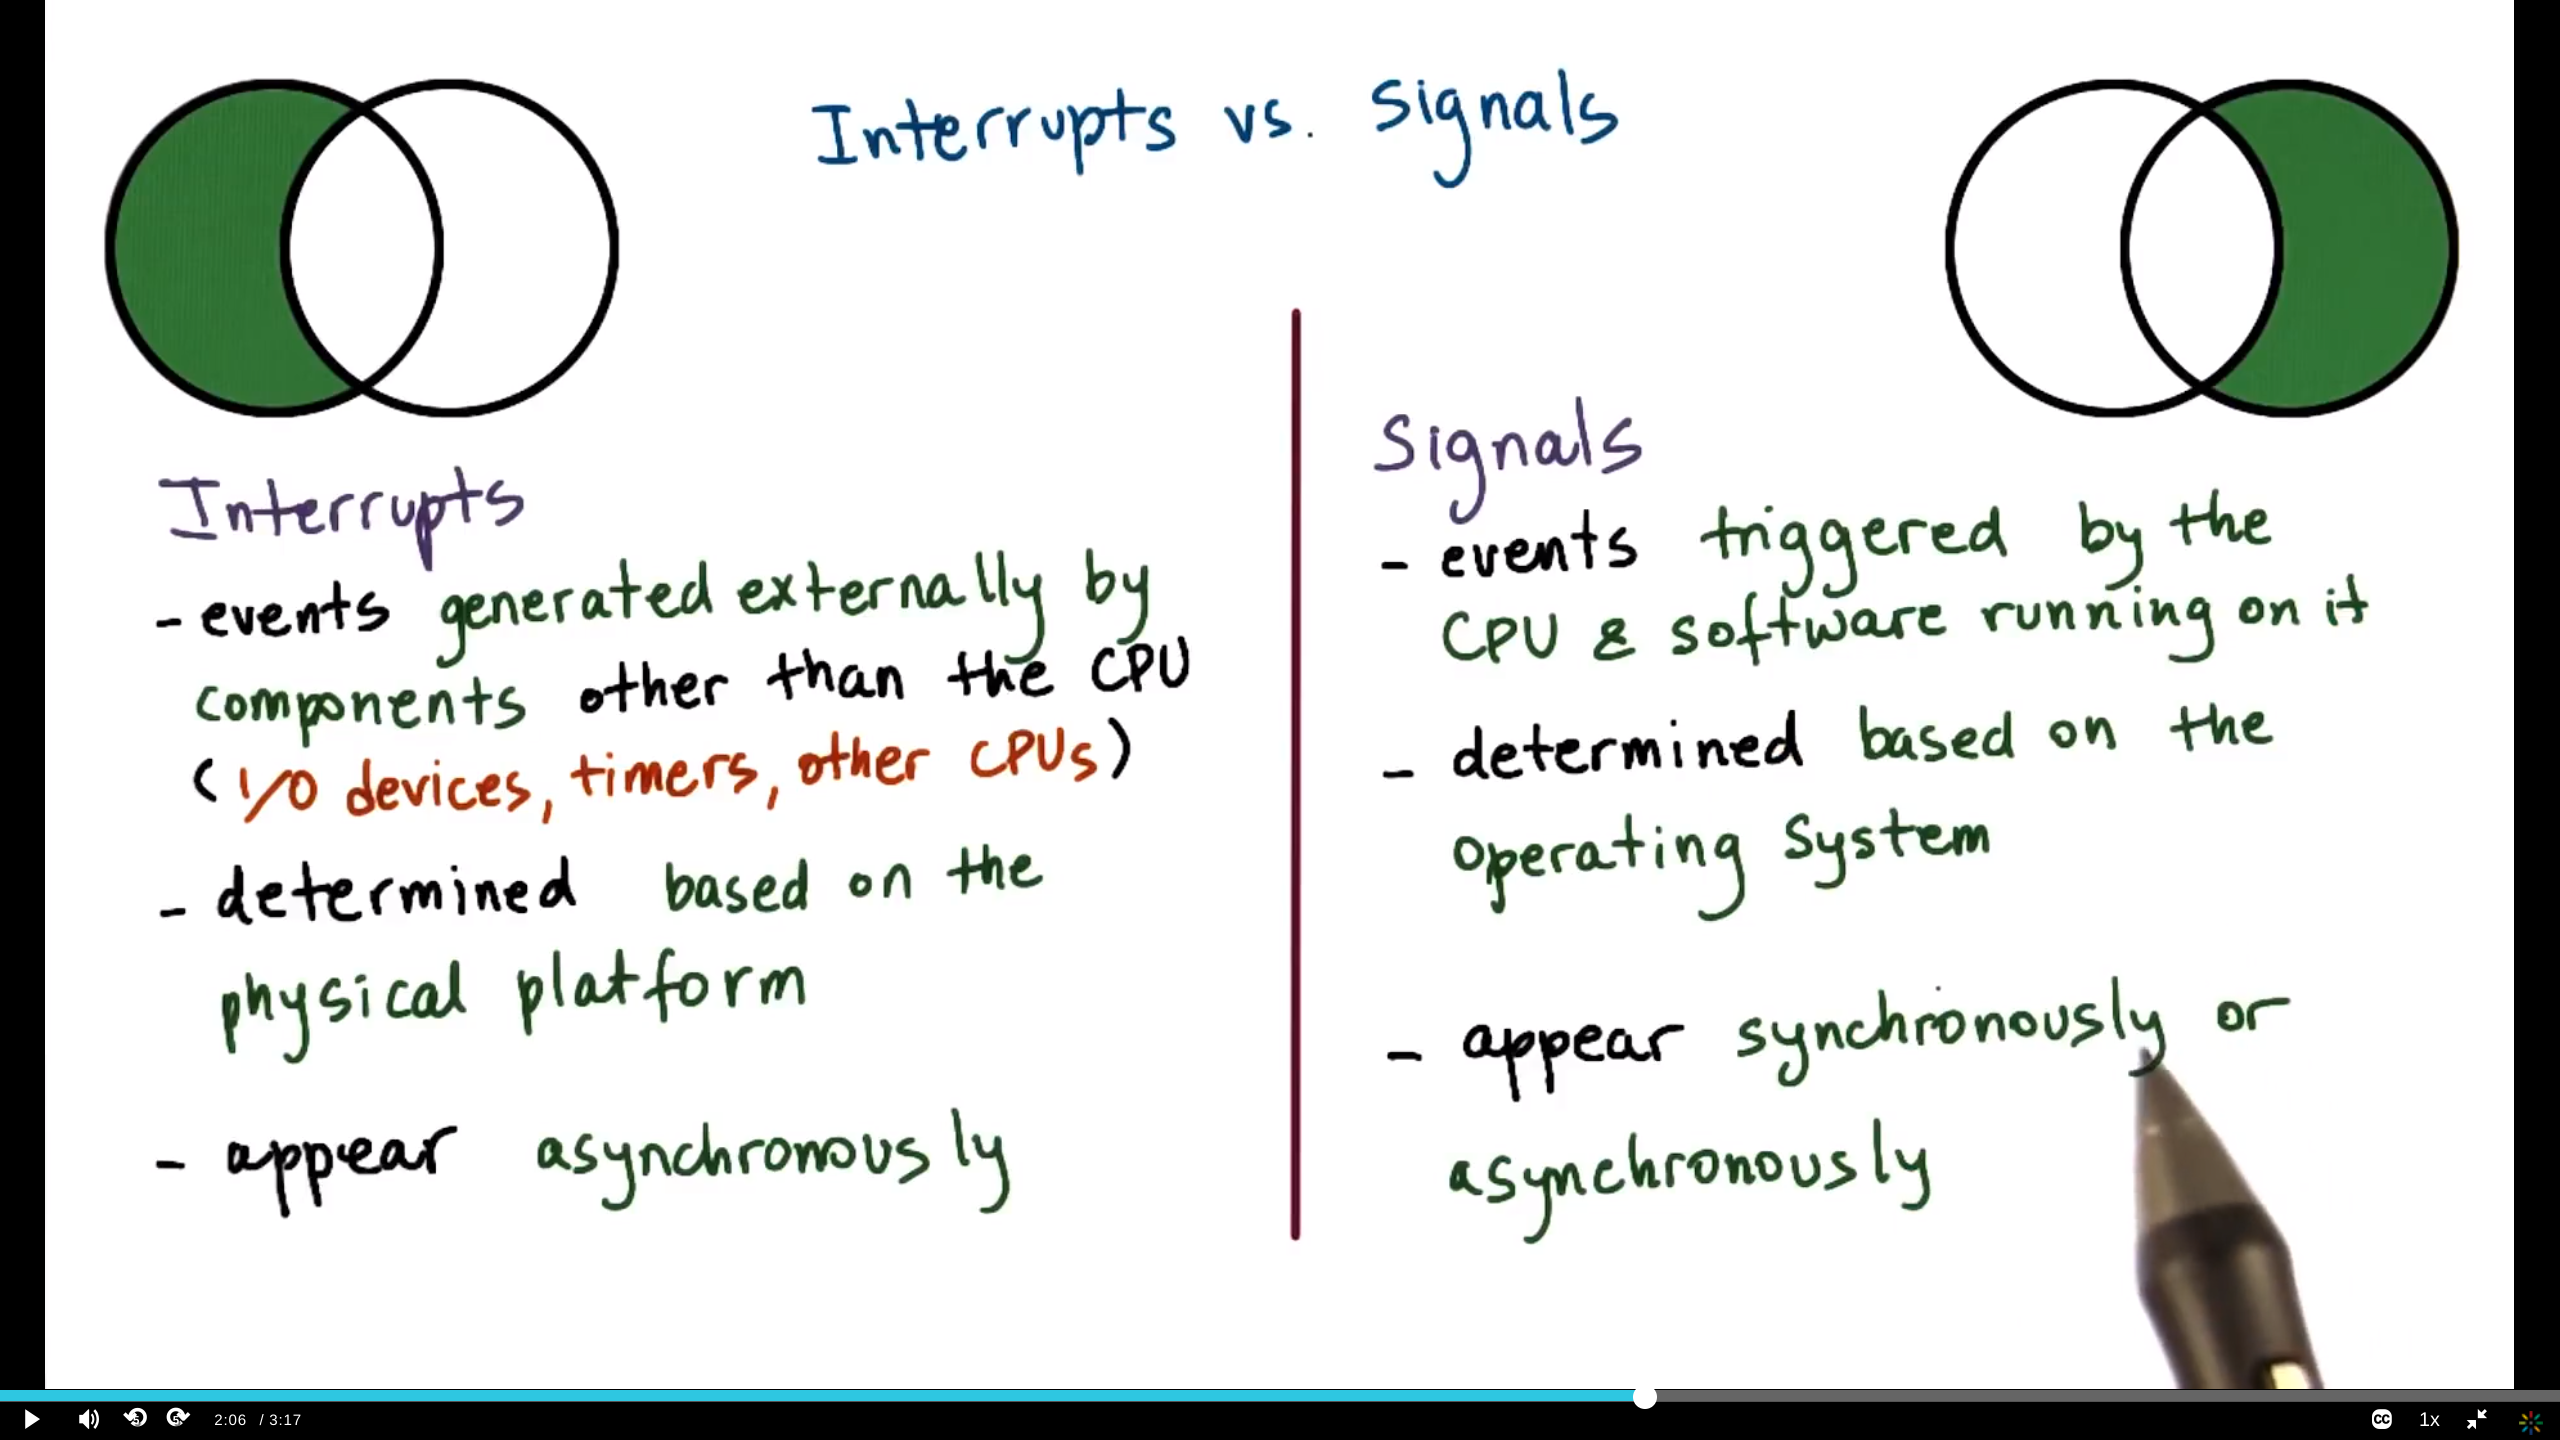 Interrupts vs. Signals
Interrupts
- events generated externally by
components other than the CPU
(I/O devices, timers, other CPUs)
- determined based on the
physical platform
- appear asynchronously
Signals
- events triggered by the
CPU & software running on it
- determined based on the
operating system
- appear synchronously or
asynchronously
5
5
2:06 / 3:17
CC
1x